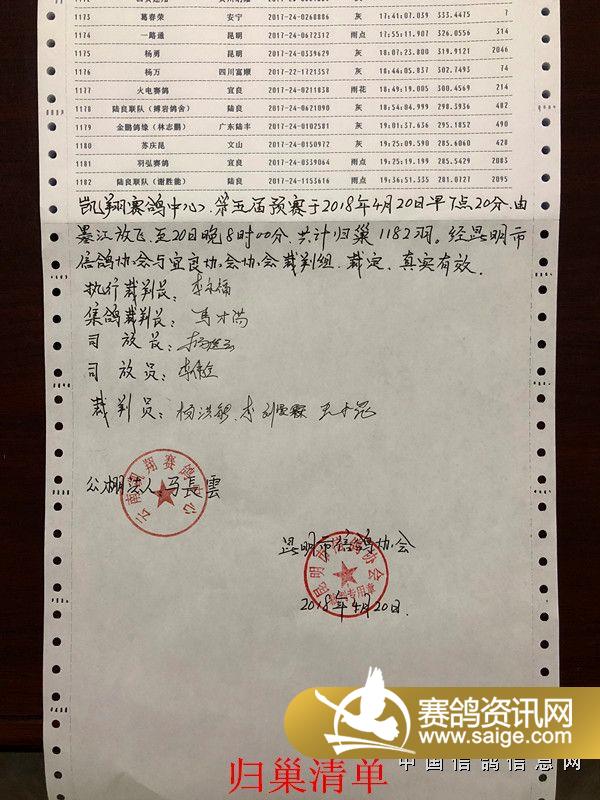 1173 葛春荣 安宁 2017-24-0260886 灰 17:41:07.039 333.4475 7
1174 一路通 昆明 2017-24-0672312 雨点 17:55:11.907 326.0556 314
1175 杨勇 昆明 2017-24-0339629 灰 18:07:23.800 319.9121 2046
1176 杨万 四川富顺 2017-22-1721357 灰 18:44:05.837 302.7493 74
1177 火电赛鸽 宜良 2017-24-0211838 雨花 18:49:19.005 300.4569 214
1178 陆良联队（搏岩鸽舍） 陆良 2017-24-0621090 灰 18:54:04.999 298.3936 482
1179 金鹏鸽缘（林志鹏） 广东陆丰 2017-24-0102581 灰 19:01:37.636 295.1852 490
1180 苏庆昆 文山 2017-24-0150972 灰 19:25:09.590 285.6060 428
1181 羽弘赛鸽 宜良 2017-24-0339064 雨点 19:25:19.199 285.5429 2083
1182 陆良联队（谢胜能） 陆良 2017-24-1153616 雨点 19:36:51.335 281.0727 2095
凯翔赛鸽中心、第五届预赛于2018年4月20日早7点20分.由
墨江放飞.至20日晚8时00分.共计归巢1182羽。经昆明市
信鸽协会与宜良协会协会裁判组.裁定.真实有效.
执行裁判长：
集鸽裁判长：马才满
司放长：
司放员：
裁判员：
公棚法人 马長雲
云南凯翔赛鸽中心
昆明市信鸽协会
昆明市信鸽协会
裁判专用章
2018年4月20日.
赛鸽资讯网
www.saige.com
中国信鸽信息网
归巢清单